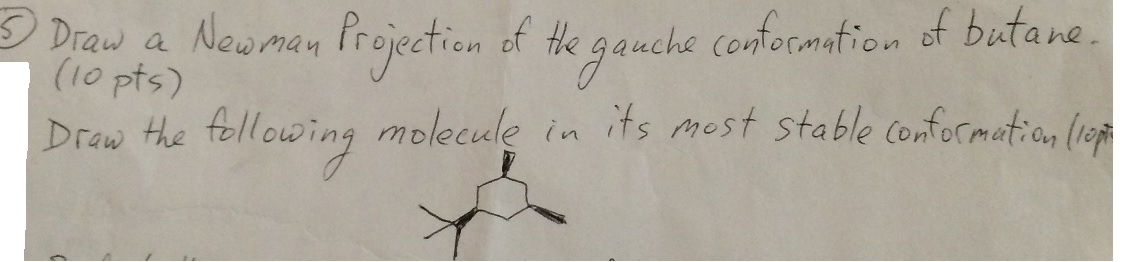 ⑤ Draw a Newman Projection of the gauche conformation of butane.
(10 pts)
Draw the following molecule in its most stable conformation (10pt